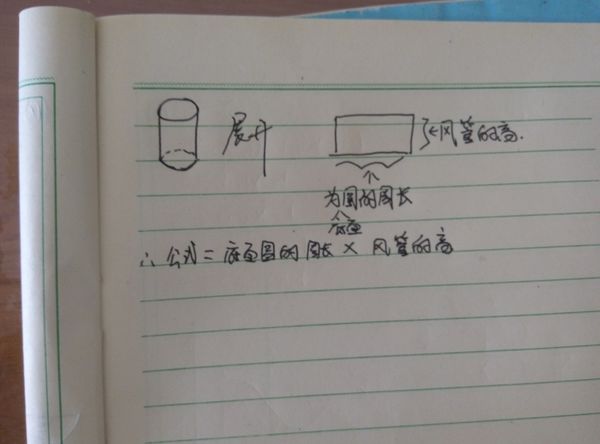 展开
←风管的高.
为圆的周长
底面
∴ 公式 = 底面圆的周长 × 风管的高